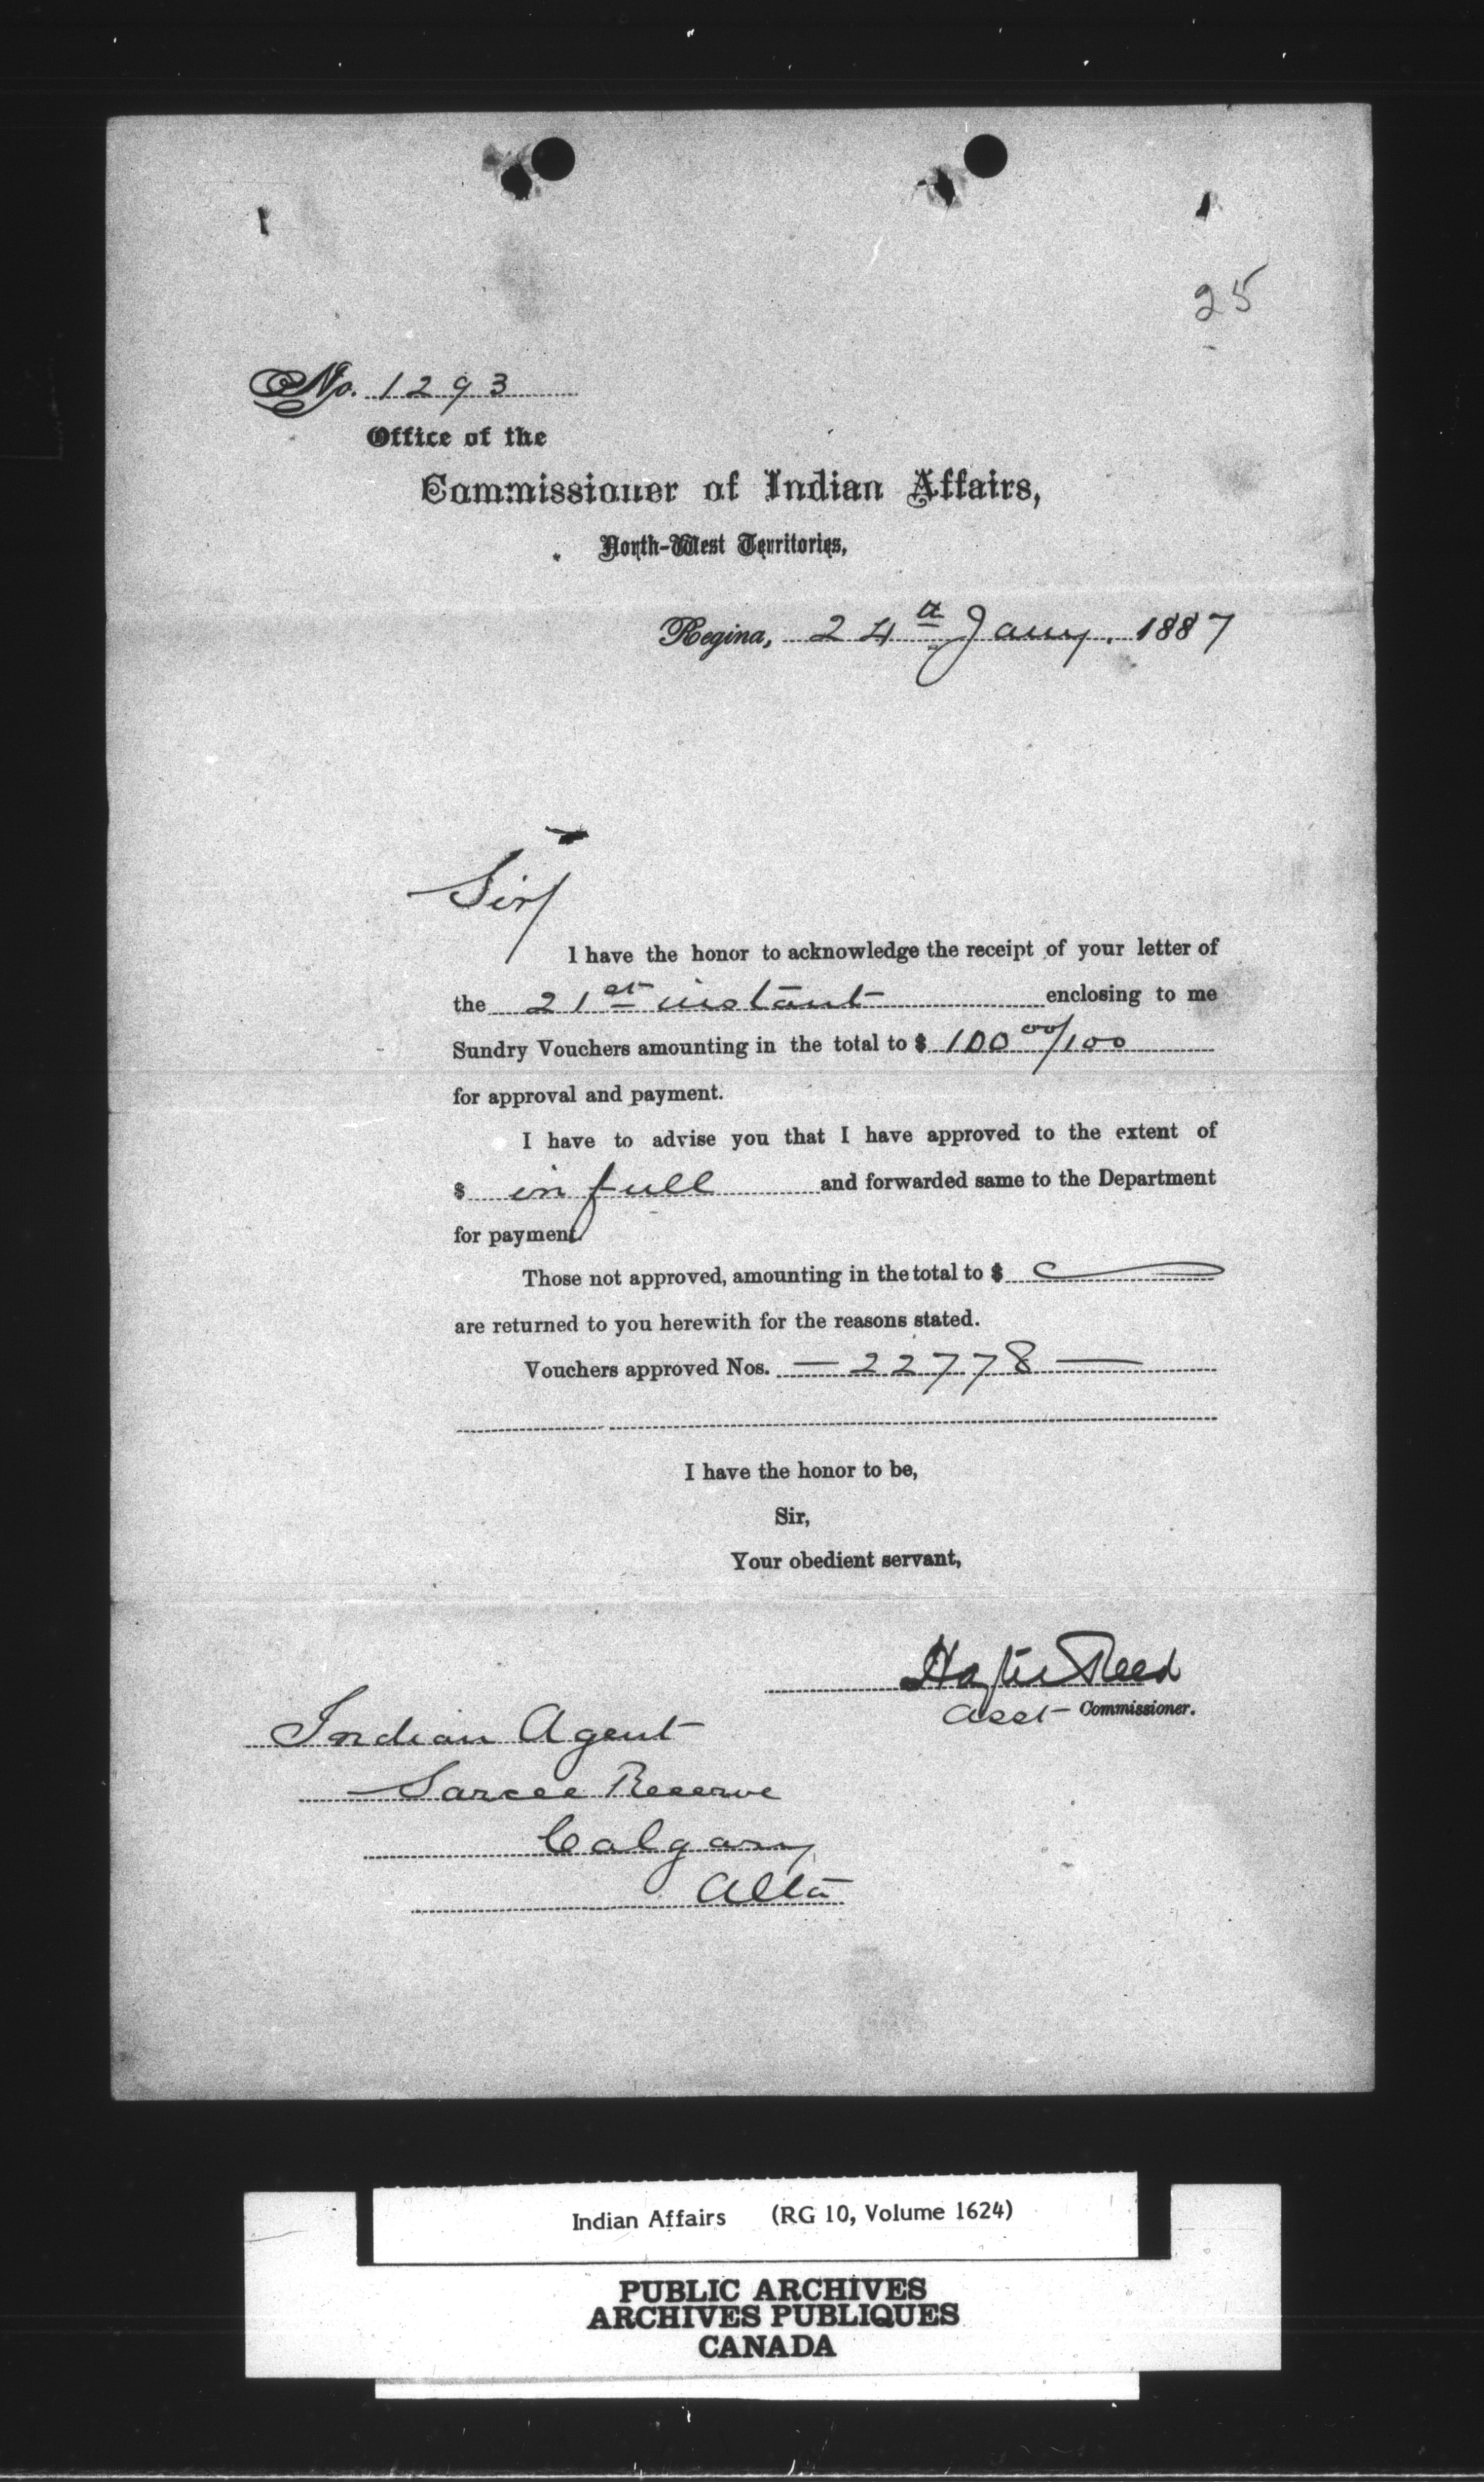 25
No. 1293
Office of the
Commissioner of Indian Affairs,
North-West Territories,
Regina, 24th Jany. 1887
Sir/
I have the honor to acknowledge the receipt of your letter of
the 21st instant enclosing to me
Sundry Vouchers amounting in the total to $ 100 00/100
for approval and payment.
I have to advise you that I have approved to the extent of
$ in full and forwarded same to the Department
for payment.
Those not approved, amounting in the total to $
are returned to you herewith for the reasons stated.
Vouchers approved Nos. — 22778 —
I have the honor to be,
Sir,
Your obedient servant,
Hayter Reed
Asst Commissioner.
Indian Agent
Sarcee Reserve
Calgary
Alta
Indian Affairs (RG 10, Volume 1624)
PUBLIC ARCHIVES
ARCHIVES PUBLIQUES
CANADA